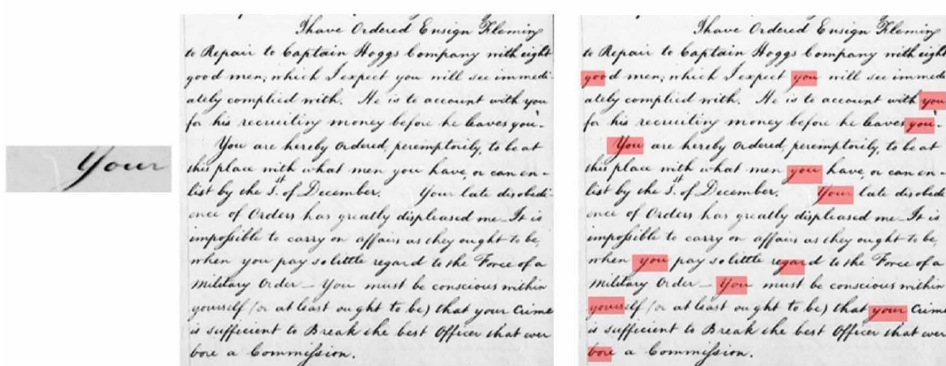 Your
I have Ordered Ensign Fleming
to Repair to Captain Hoggs Company with eight
good men; which I expect you will see immedi-
ately complied with. He is to account with you
for his recruiting money before he leaves you.
You are hereby Ordered, peremptorily, to be at
this place with what men you have, or can en-
list by the 1st. of December. Your late disobedi-
ence of Orders has greatly displeased me. It is
impossible to carry on affairs as they ought to be,
when you pay so little regard to the Force of a
Military Order — You must be conscious within
yourself (or at least ought to be) that your Crime
is sufficient to Break the best Officer that ever
bore a Commission.
I have Ordered Ensign Fleming
to Repair to Captain Hoggs Company with eight
good men; which I expect you will see immed
ately complied with. He is to account with you
for his recruiting money before he leaves you.
You are hereby Ordered, peremptorily, to be at
this place with what men you have, or can en-
list by the 1st. of December. Your late disobed
ence of Orders has greatly displeased me. It is
impossible to carry on affairs as they ought to be,
when you pay so little regard to the Force of a
Military Order — You must be conscious within
yourself (or at least ought to be) that your Crime
is sufficient to Break the best Officer that ever
bore a Commission.